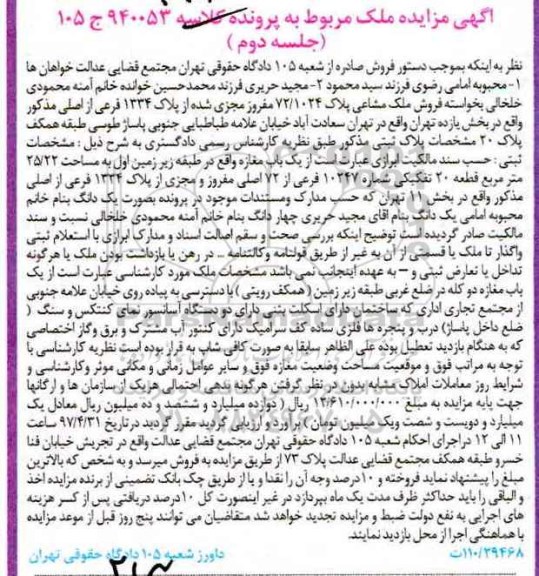 آگهی مزایده ملک مربوط به پرونده کلاسه ۹۴۰۰۵۳ ج ۱۰۵
(جلسه دوم )
نظر به اینکه بموجب دستور فروش صادره از شعبه ۱۰۵ دادگاه حقوقی تهران مجتمع قضایی عدالت خواهان ها
۱- محبوبه امامی رضوی فرزند سید محمود ۲- مجید حریری فرزند محمدحسین خوانده خانم آمنه محمودی
خلخالی بخواسته فروش ملک مشاعی پلاک ۷۲/۱۰۲۴ مفروز مجزی شده از پلاک ۱۳۳۴ فرعی از اصلی مذکور
واقع در بخش یازده تهران واقع در تهران سعادت آباد خیابان علامه طباطبایی جنوبی پاساژ طوسی طبقه همکف
پلاک ۲۰ مشخصات پلاک ثبتی مذکور طبق نظریه کارشناس رسمی دادگستری به شرح ذیل : مشخصات
ثبتی : حسب سند مالکیت ابرازی عبارت است از یک باب مغازه واقع در طبقه زیر زمین اول به مساحت ۲۵/۲۲
متر مربع قطعه ۲۰ تفکیکی شماره ۱۰۲۴۷ فرعی از ۷۲ اصلی مفروز و مجزی از پلاک ۱۳۳۴ فرعی از اصلی
مذکور واقع در بخش ۱۱ تهران که حسب مدارک ومستندات موجود در پرونده بصورت یک دانگ بنام خانم
محبوبه امامی یک دانگ بنام آقای مجید حریری چهار دانگ بنام خانم آمنه محمودی خلخالی نسبت و سند
مالکیت صادر گردیده است توضیح اینکه بررسی صحت و سقم اصالت اسناد و مدارک ابرازی با استعلام ثبتی
واگذار تا ملک یا قسمتی از آن به غیر از طریق قولنامه وکالتنامه _ در رهن یا بازداشت بودن ملک یا هرگونه
تداخل یا تعارض ثبتی و – به عهده اینجانب نمی باشد مشخصات ملک مورد کارشناسی عبارت است از یک
باب مغازه دو کله در ضلع غربی طبقه زیر زمین ( همکف رویتی ) با دسترسی به پیاده روی خیابان علامه جنوبی
از مجتمع تجاری اداری که ساختمان دارای اسکلت بتنی دارای دو دستگاه آسانسور نمای کنتکس و سنگ (
ضلع داخل پاساژ) درب و پنجره ها فلزی ساده کف سرامیک دارای کنتور آب مشترک و برق وگاز اختصاصی
که به هنگام بازدید تعطیل بوده علی الظاهر سابقا به صورت کافی شاپ به قرار بوده است نظریه کارشناسی با
توجه به مراتب فوق و موقعیت مساحت وضعیت مغازه فوق و سایر عوامل زمانی و مکانی موثر وکارشناسی و
شرایط روز معاملات املاک مشابه بدون در نظر گرفتن هرگونه بدهی احتمالی هریک از سازمان ها و ارگانها
جهت پایه مزایده به مبلغ ۱۲/۶۱۰/۰۰۰/۰۰۰ ریال ( دوازده میلیارد و ششصد و ده میلیون ریال معادل یک
میلیارد و دویست و شصت ویک میلیون تومان ) برآورد و ارزیابی گردید مقرر گردید در تاریخ ۹۷/۴/۳۱ ساعت
۱۱ الی ۱۲ دراجرای احکام شعبه ۱۰۵ دادگاه حقوقی تهران مجتمع قضایی عدالت واقع در تجریش خیابان فنا
خسرو طبقه همکف مجتمع قضایی عدالت پلاک ۷۳ از طریق مزایده به فروش میرسد و به شخص که بالاترین
مبلغ را پیشنهاد نماید فروخته و ۱۰درصد وجه آن را نقدا و یا از طریق چک بانک تضمینی از برنده مزایده اخذ
و الباقی را باید حداکثر ظرف مدت یک ماه بپردازد در غیر اینصورت کل ۱۰درصد دریافتی پس از کسر هزینه
های اجرایی به نفع دولت ضبط و مزایده تجدید خواهد شد متقاضیان می توانند پنج روز قبل از موعد مزایده
با هماهنگی اجرا از محل بازدید نمایند.
۱۱۰/۲۹۴۶۸ت
داورز شعبه ۱۰۵ دادگاه حقوقی تهران